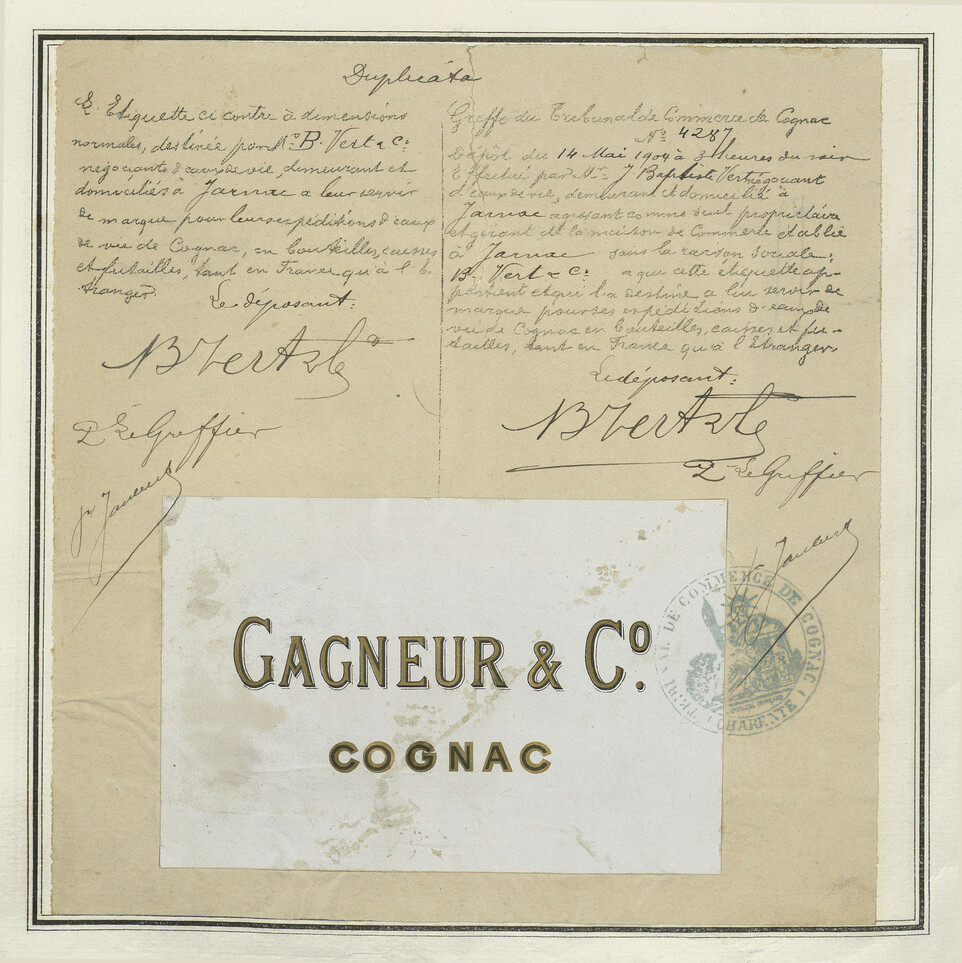 Duplicata
Etiquette ci contre à dimensions
normales, destinée par Mrs B. Vert & Co.
négociants d'eaux de vie, demeurant et
domiciliés à Jarnac a leur servir
de marque pour leurs expéditions d'eaux
de vie de Cognac, en bouteilles, caisses
et futailles, tant en France qu'à l'é-
tranger.
Le déposant:
B Vert & Co
Pr Le Greffier
Greffe du Tribunal de Commerce de Cognac
No 4287
Dépôt du 14 Mai 1904 à 3 heures du soir
Effectué par Mr J. Baptiste Vert négociant
d'eaux de vie, demeurant et domicilié à
Jarnac agissant comme seul propriétaire
et gérant de la maison de Commerce établie
à Jarnac sous la raison sociale:
B. Vert & Co. a qui cette étiquette ap-
partient et qui l'a destine a lui servir de
marque pour ses expéditions d'eaux de
vie de Cognac en bouteilles, caisses et fu-
tailles, tant en France qu'à l'Etranger.
Le déposant:
B Vert & Co
Pr Le Greffier
GAGNEUR & Co.
COGNAC
TRIBUNAL DE COMMERCE DE COGNAC
(CHARENTE)